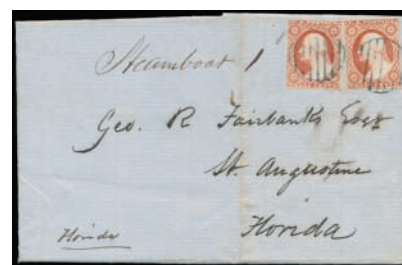 Steamboat 1
Geo. R Fairbanks Esqr
St. Augustine
Florida
Florida